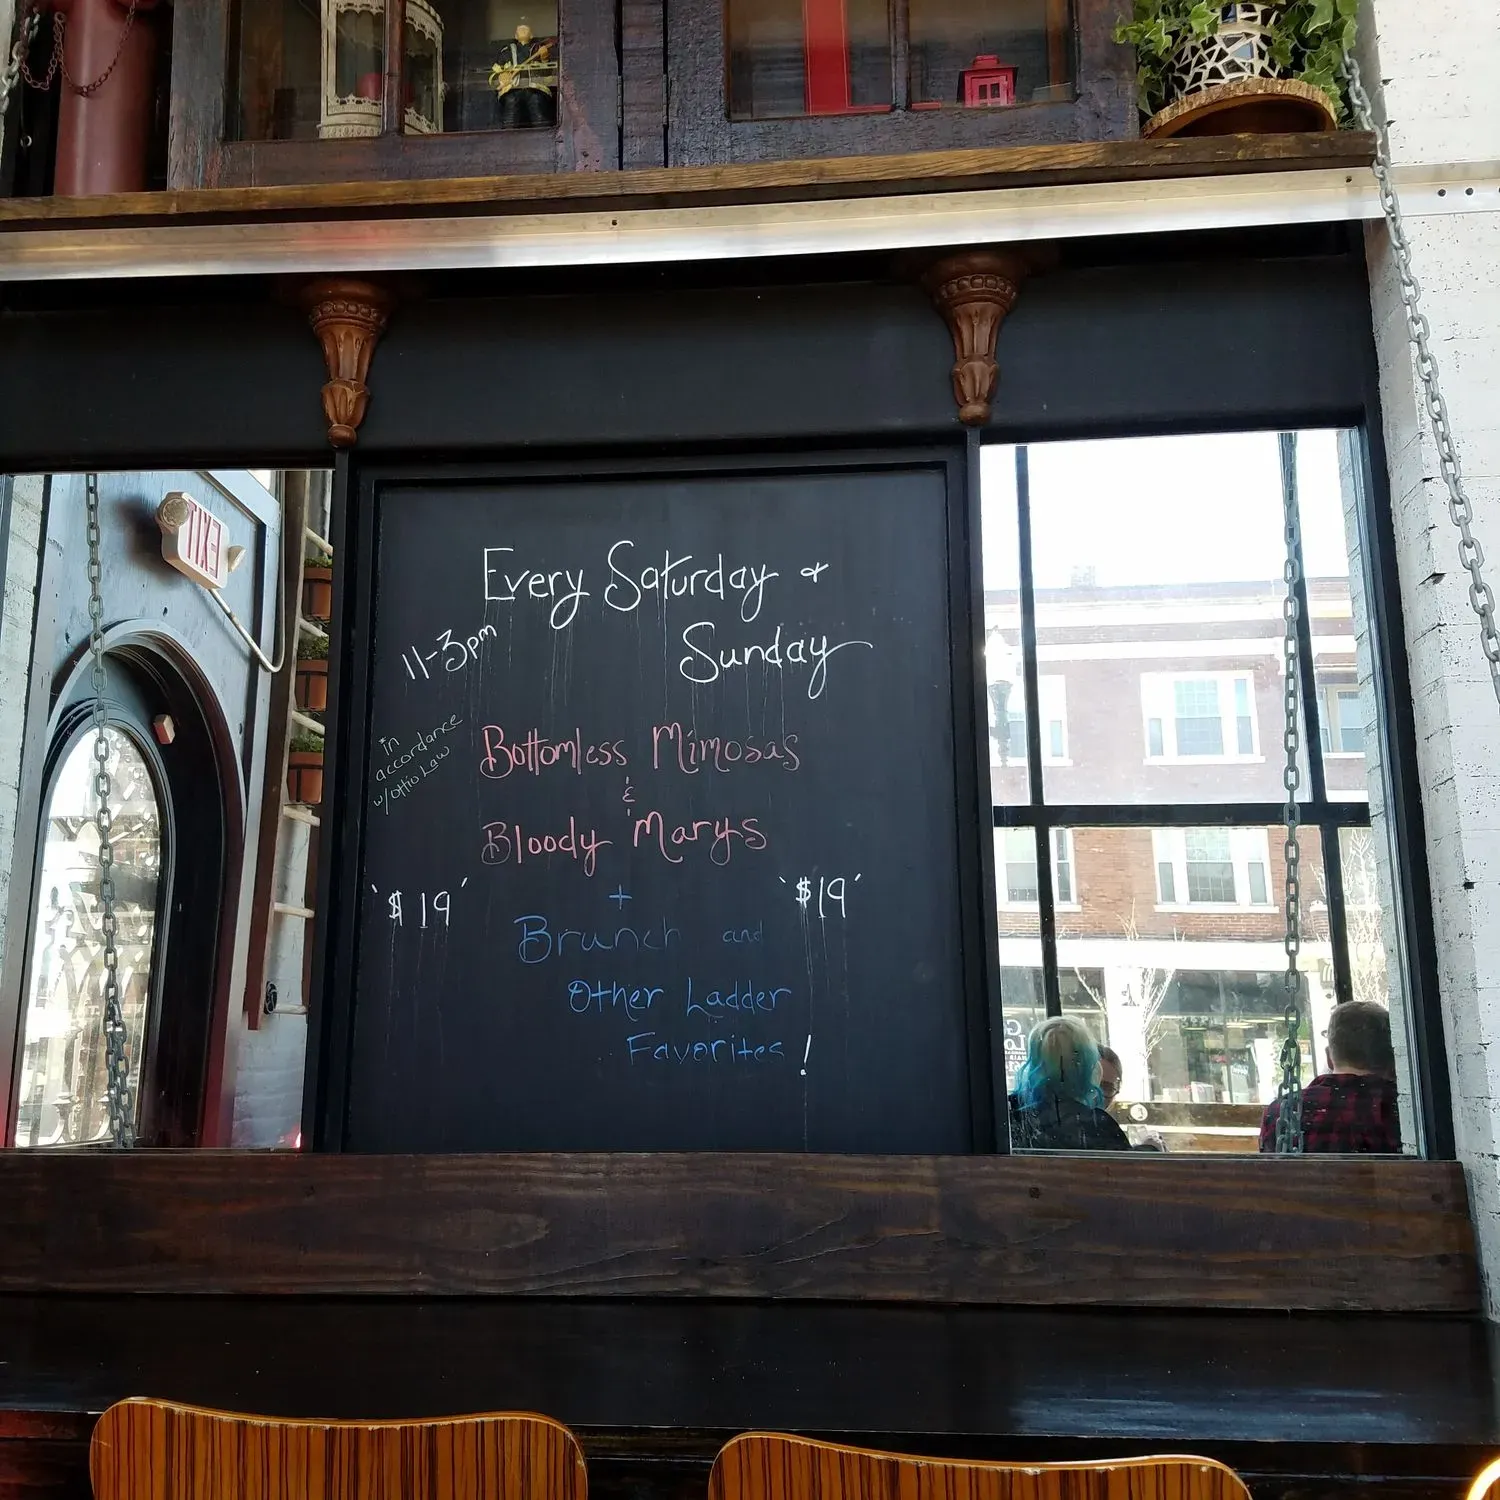 EXIT
Every Saturday &
Sunday
11-3pm
in
accordance
w/Ohio Law
Bottomless Mimosas
&
Bloody Marys
$19
$19
+
Brunch and
Other Ladder
Favorites!